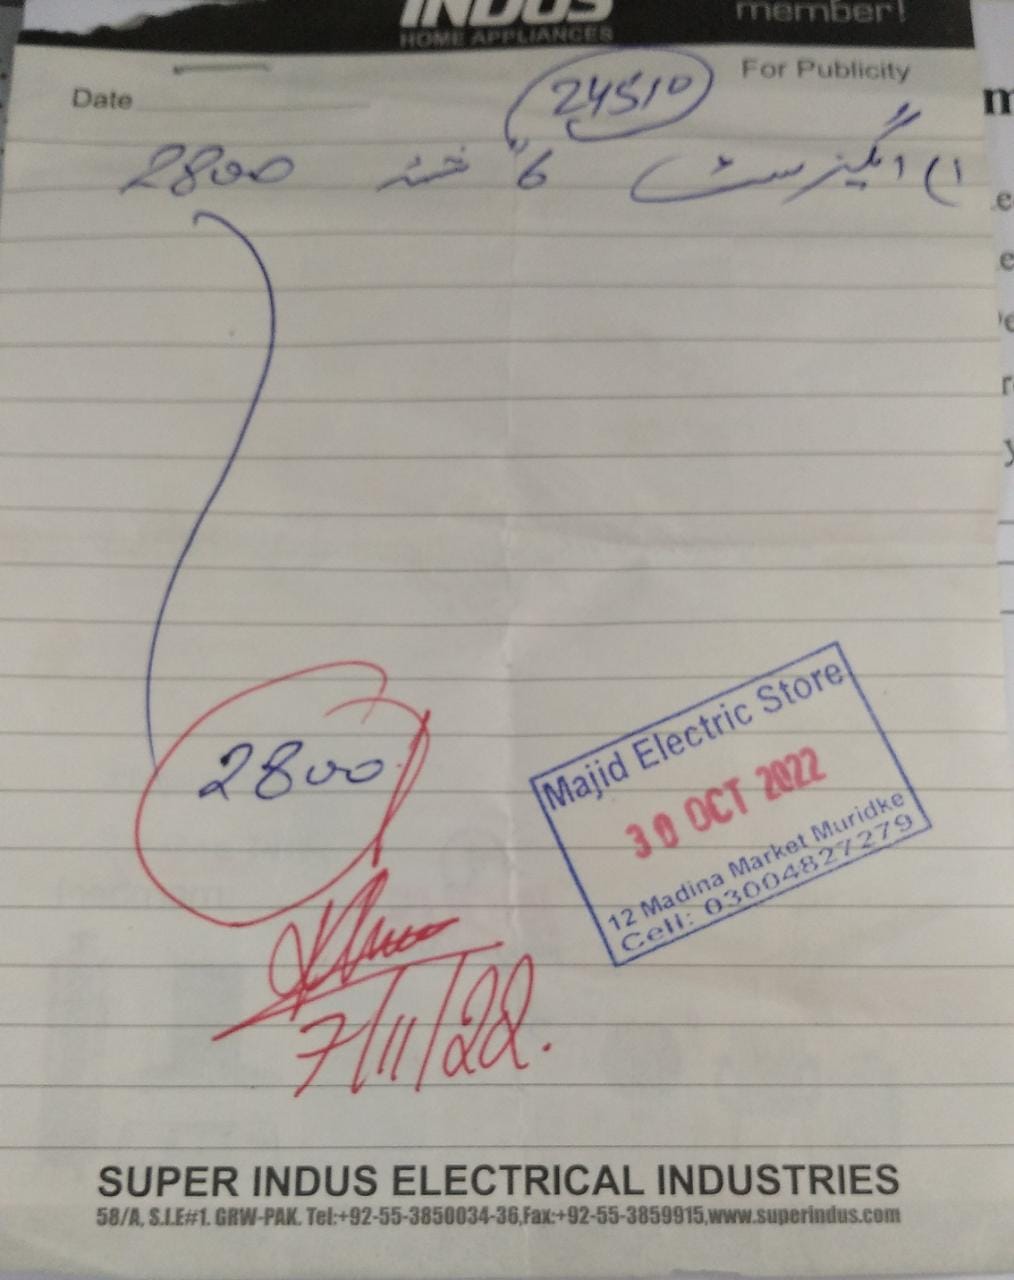 INDUS
HOME APPLIANCES
member!
For Publicity
Date
24510
۱) اگیزسٹ 6" 2800
2800
Majid Electric Store
30 OCT 2022
12 Madina Market Muridke
Cell: 03004827279
7/11/22.
SUPER INDUS ELECTRICAL INDUSTRIES
58/A, S.I.E#1. GRW-PAK. Tel:+92-55-3850034-36,Fax:+92-55-3859915,www.superindus.com